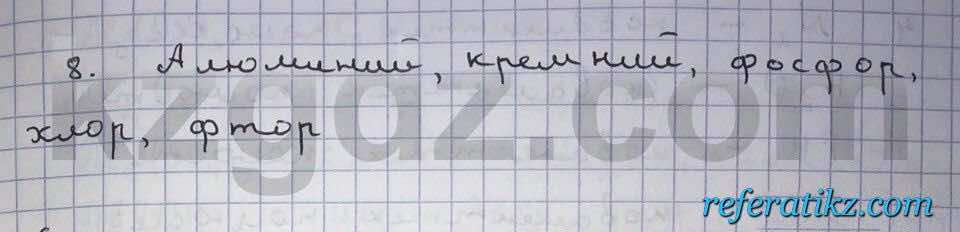 8. Алюминий, кремний, фосфор,
хлор, фтор
kzgdz.com
referatikz.com